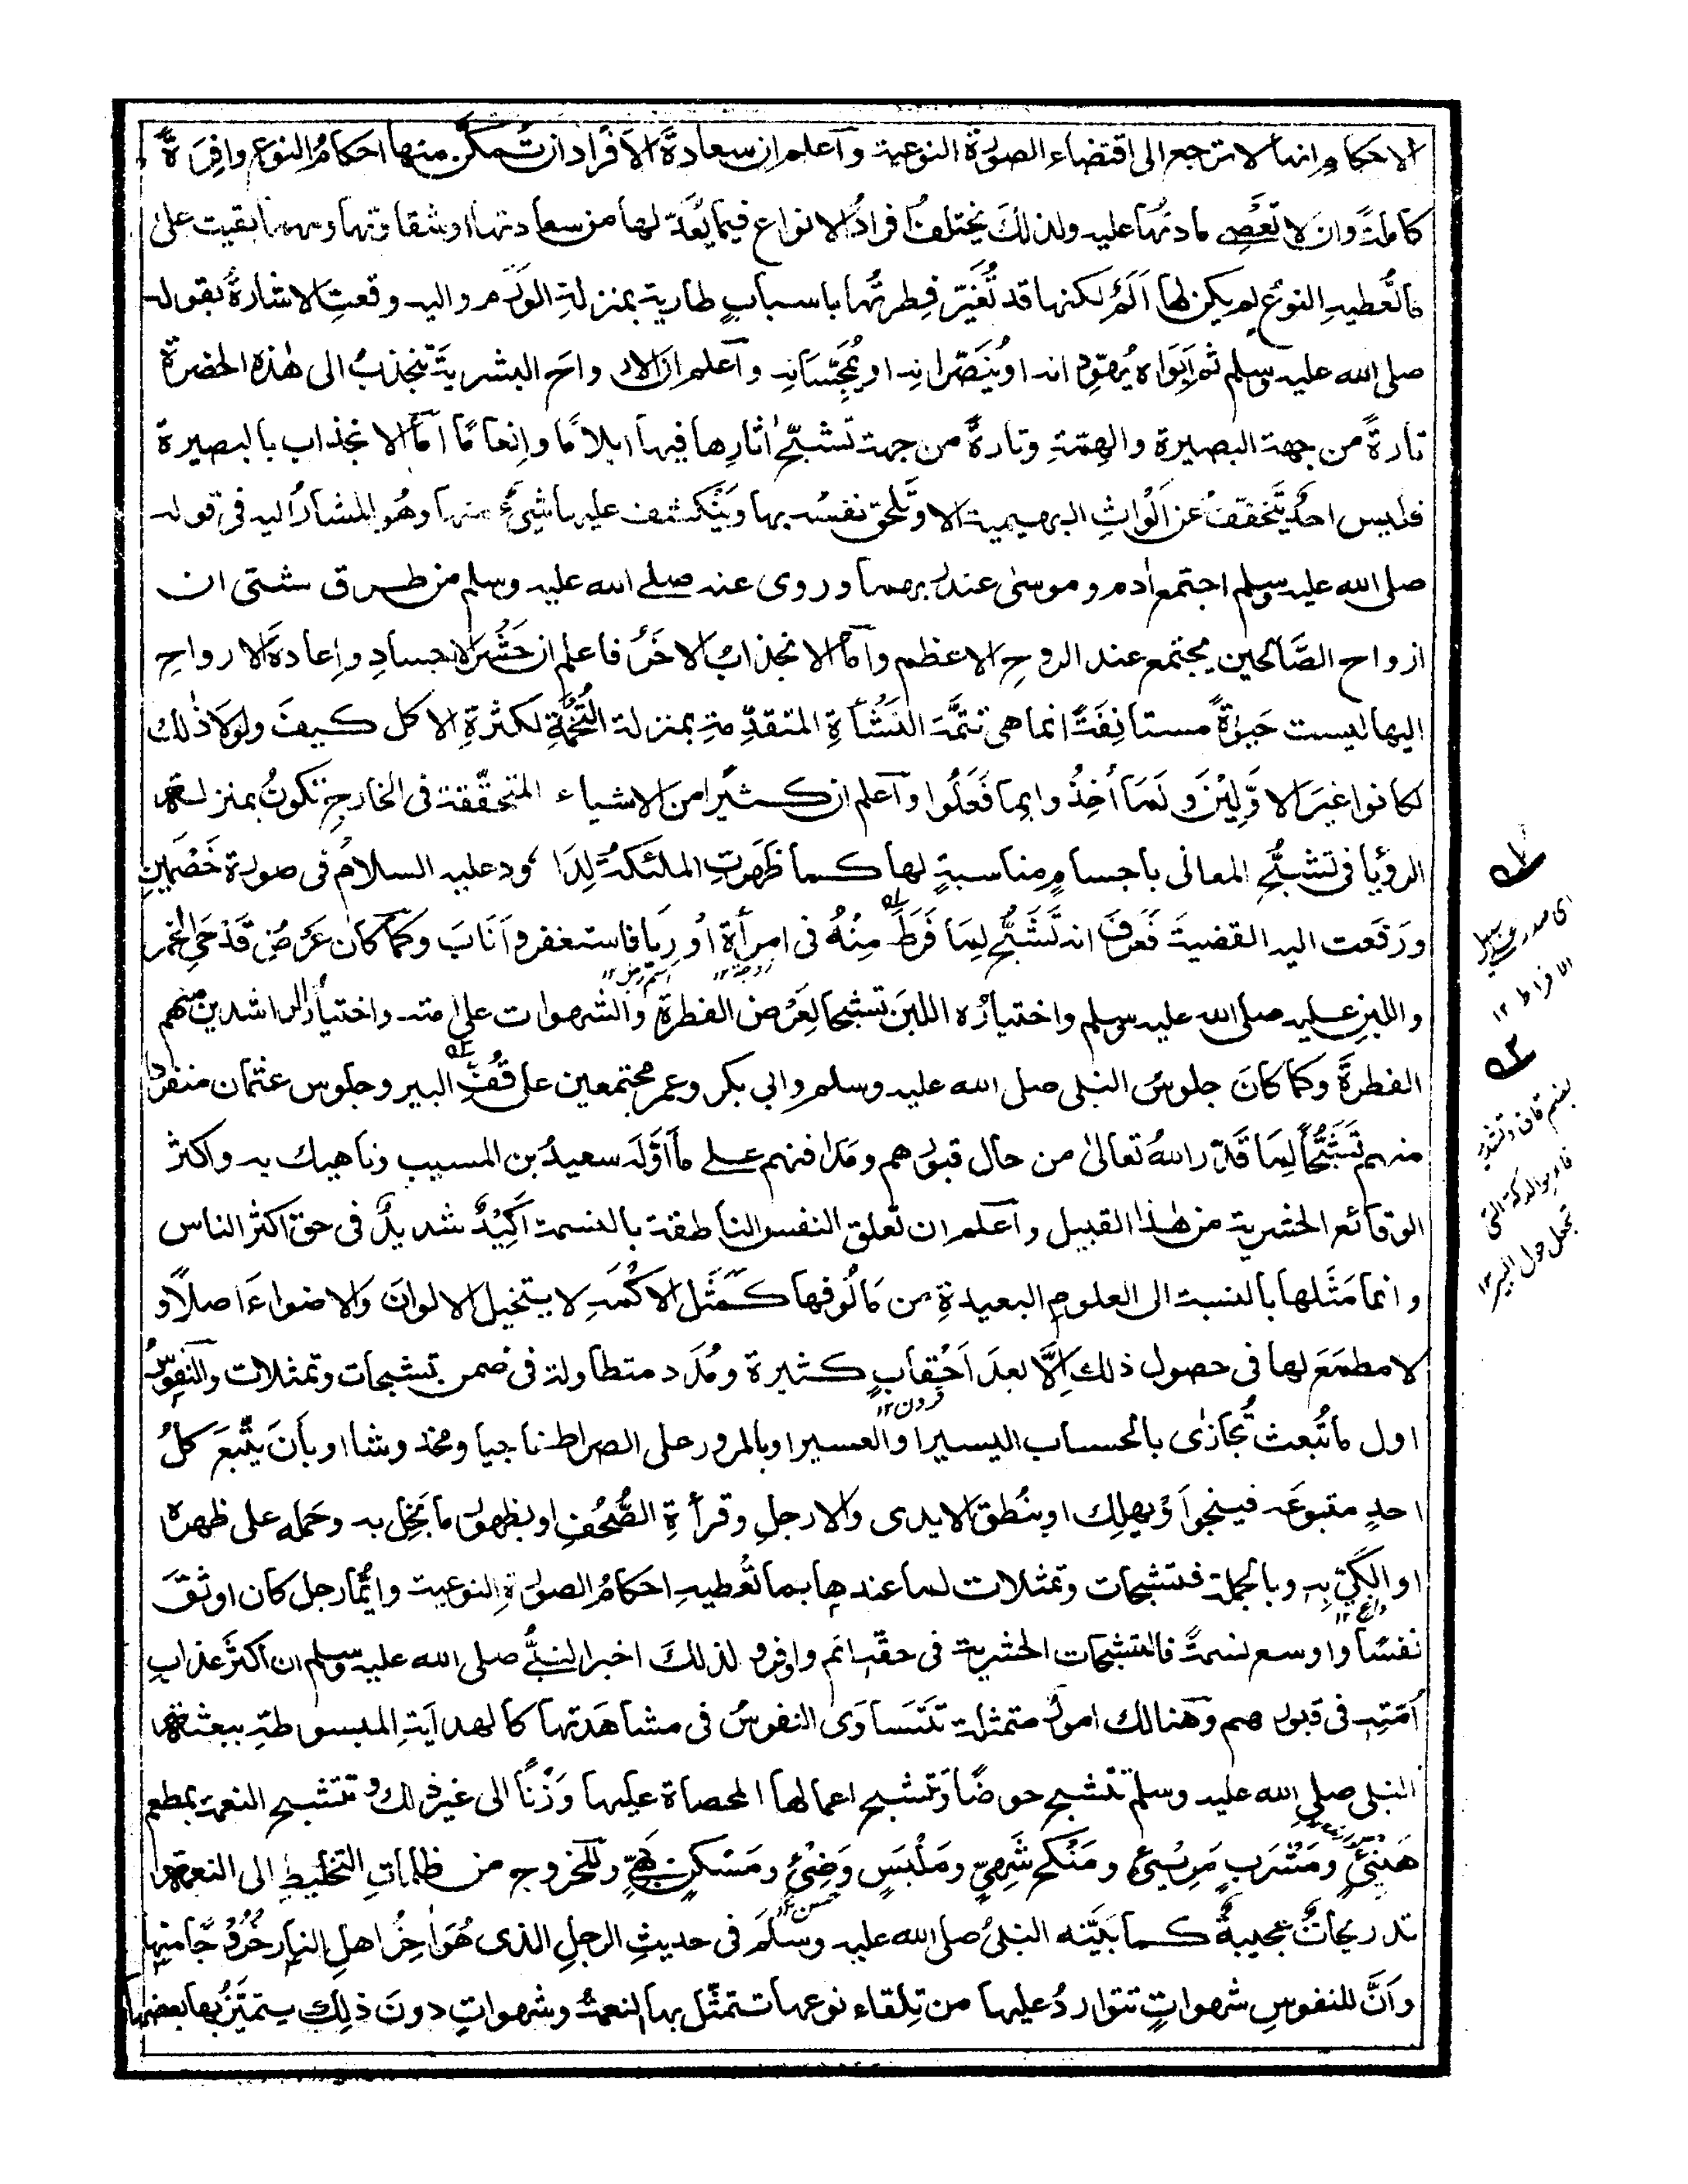 الاحكام انها لا ترجع الى اقتضاء الصورة النوعية واعلم ان سعادة الافراد ان تمكن منها احكام النوع وافرة
كاملة وان لا تعصى مادتها عليه ولذلك يختلف افراد الانواع فيما يعد لها من سعادتها او شقاوتها ومهما بقيت على
ما تعطيه النوع لم يكن لها الم لكنها قد تغير فطرتها باسباب طارية بمنزلة الورم واليه وقعت الاشارة بقوله
صلى الله عليه وسلم ثم ابواه يهودانه او ينصرانه او يمجسانه واعلم ان الارواح البشرية تنجذب الى هذه الحضرة
تارة من جهة البصيرة والهمة وتارة من جهة تشبح اثارها فيها ايلاما وانعاما اما الانجذاب بالبصيرة
فليس احد يتخفف عن الواث البهيمية الا وتلحق نفسه بها وينكشف عليها شيء منها وهو المشار اليه في قوله
صلى الله عليه وسلم اجتمع ادم وموسى عند ربهما وروى عنه صلے الله عليه وسلم من طرق شتى ان
ارواح الصالحين يجتمع عند الروح الاعظم واما الانجذاب الاخر فاعلم ان حشر الاجساد واعادة الارواح
اليها ليست حيوة مستانفة انما هي تتمة النشأة المتقدمة بمنزلة التخمة لكثرة الاكل كيف ولولا ذلك
لكانوا غير الاولين ولما اخذوا بما فعلوا واعلم ان كثيرا من الاشياء المتحققة في الخارج تكون بمنزلة
الرؤيا في تشبح المعاني باجسام مناسبة لها كما ظهرت الملئكة لداود عليه السلام في صورة خصمين
ورفعت اليه القضية فعرف انه تشبح لما فرط منه في امرأة اوريا فاستغفر واناب وكما كان عرض قدحي الخمر
زوجة ١٢ اسم رجل ١٢
واللبن عليه صلى الله عليه وسلم واختياره اللبن تشبحا لعرض الفطرة والشهوات على امته واختيار الراشدين منهم
الفطرة وكما كان جلوس النبي صلى الله عليه وسلم وابي بكر وعمر مجتمعين على قف البير وجلوس عثمان منفردا
منهم تشبحا لما قدر الله تعالى من حال قبورهم ومدافنهم علے ما اوله سعيد بن المسيب وناهيك به واكثر
الوقائع الحشرية من هذا القبيل واعلم ان تعلق النفس الناطقة بالنسمة اكيد شديد في حق اكثر الناس
وانما مثلها بالنسبة الى العلوم البعيدة من مالوفها كمثل الاكمه لا يتخيل الالوان والاضواء اصلا و
لا مطمع لها في حصول ذلك الا بعد احقاب كثيرة ومدد متطاولة في ضمن تشبحات وتمثلات والنفوس
قرون ١٢
اول ما تبعث تجازى بالحساب اليسير او العسير او بالمرور على الصراط ناجيا ومخدوشا او بان يتبع كل
احد متبوعه فينجوا ويهلك او بنطق الايدي والارجل وقرأة الصحف او بظهور ما بخل به وحمله على ظهره
او الكي به وبالجملة فتشبحات وتمثلات لما عندها بما تعطيه احكام الصورة النوعية وايما رجل كان اوثق
داغ ١٢
نفسا واوسع نسمة فالتشبحات الحشرية في حقه اتم واوفر ولذلك اخبر النبي صلى الله عليه وسلم ان اكثر عذاب
امته في قبورهم وهنالك امور متمثلة تتساوى النفوس في مشاهدتها كالهداية المبسوطة ببعثة
النبي صلى الله عليه وسلم تتشبح حوضا وتتشبح اعمالها المحصاة عليها وزنا الى غير ذلك وتتشبح النعمة بمطعم
هنيئ ومشرب مريئ ومنكح شهي وملبس وضئ ومسكن بهي وللخروج من ظلمات التخليط الى النعمة
حسن ١٢
تدريجات عجيبة كما بينه النبي صلى الله عليه وسلم في حديث الرجل الذي هو اخر اهل النار خروجا منها
وان للنفوس شهوات تتوارد عليها من تلقاء نوعها تتمثل بها النعمة وشهوات دون ذلك يتميز بها بعضها
اى صدر على سبيل
الافراط ١٢
بضم قاف وتشديد
فاء هو الدكة التى
تجعل حول البير ١٢